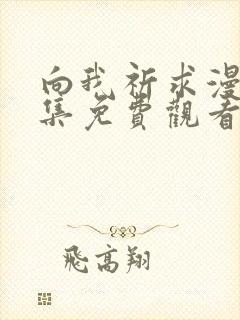 向我祈求漫
集免費觀看
飛高翔